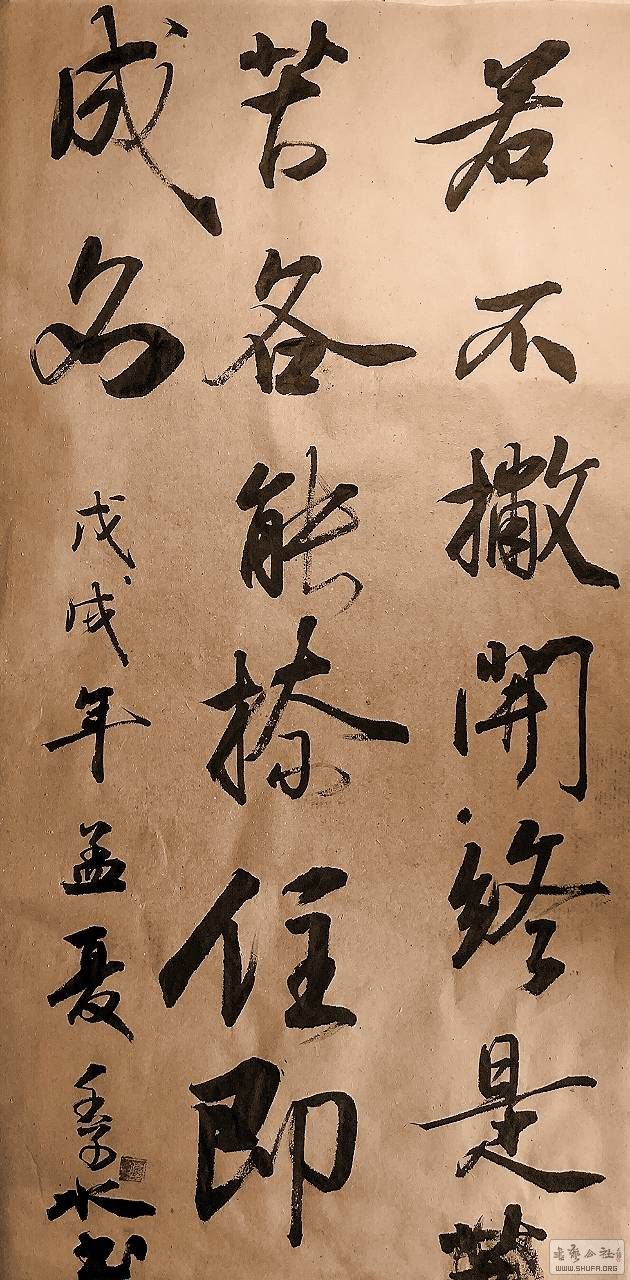 若不撇開終是
苦各能捺住即
成名
戊戌年孟夏 水书
书艺公社
WWW.SHUFA.ORG